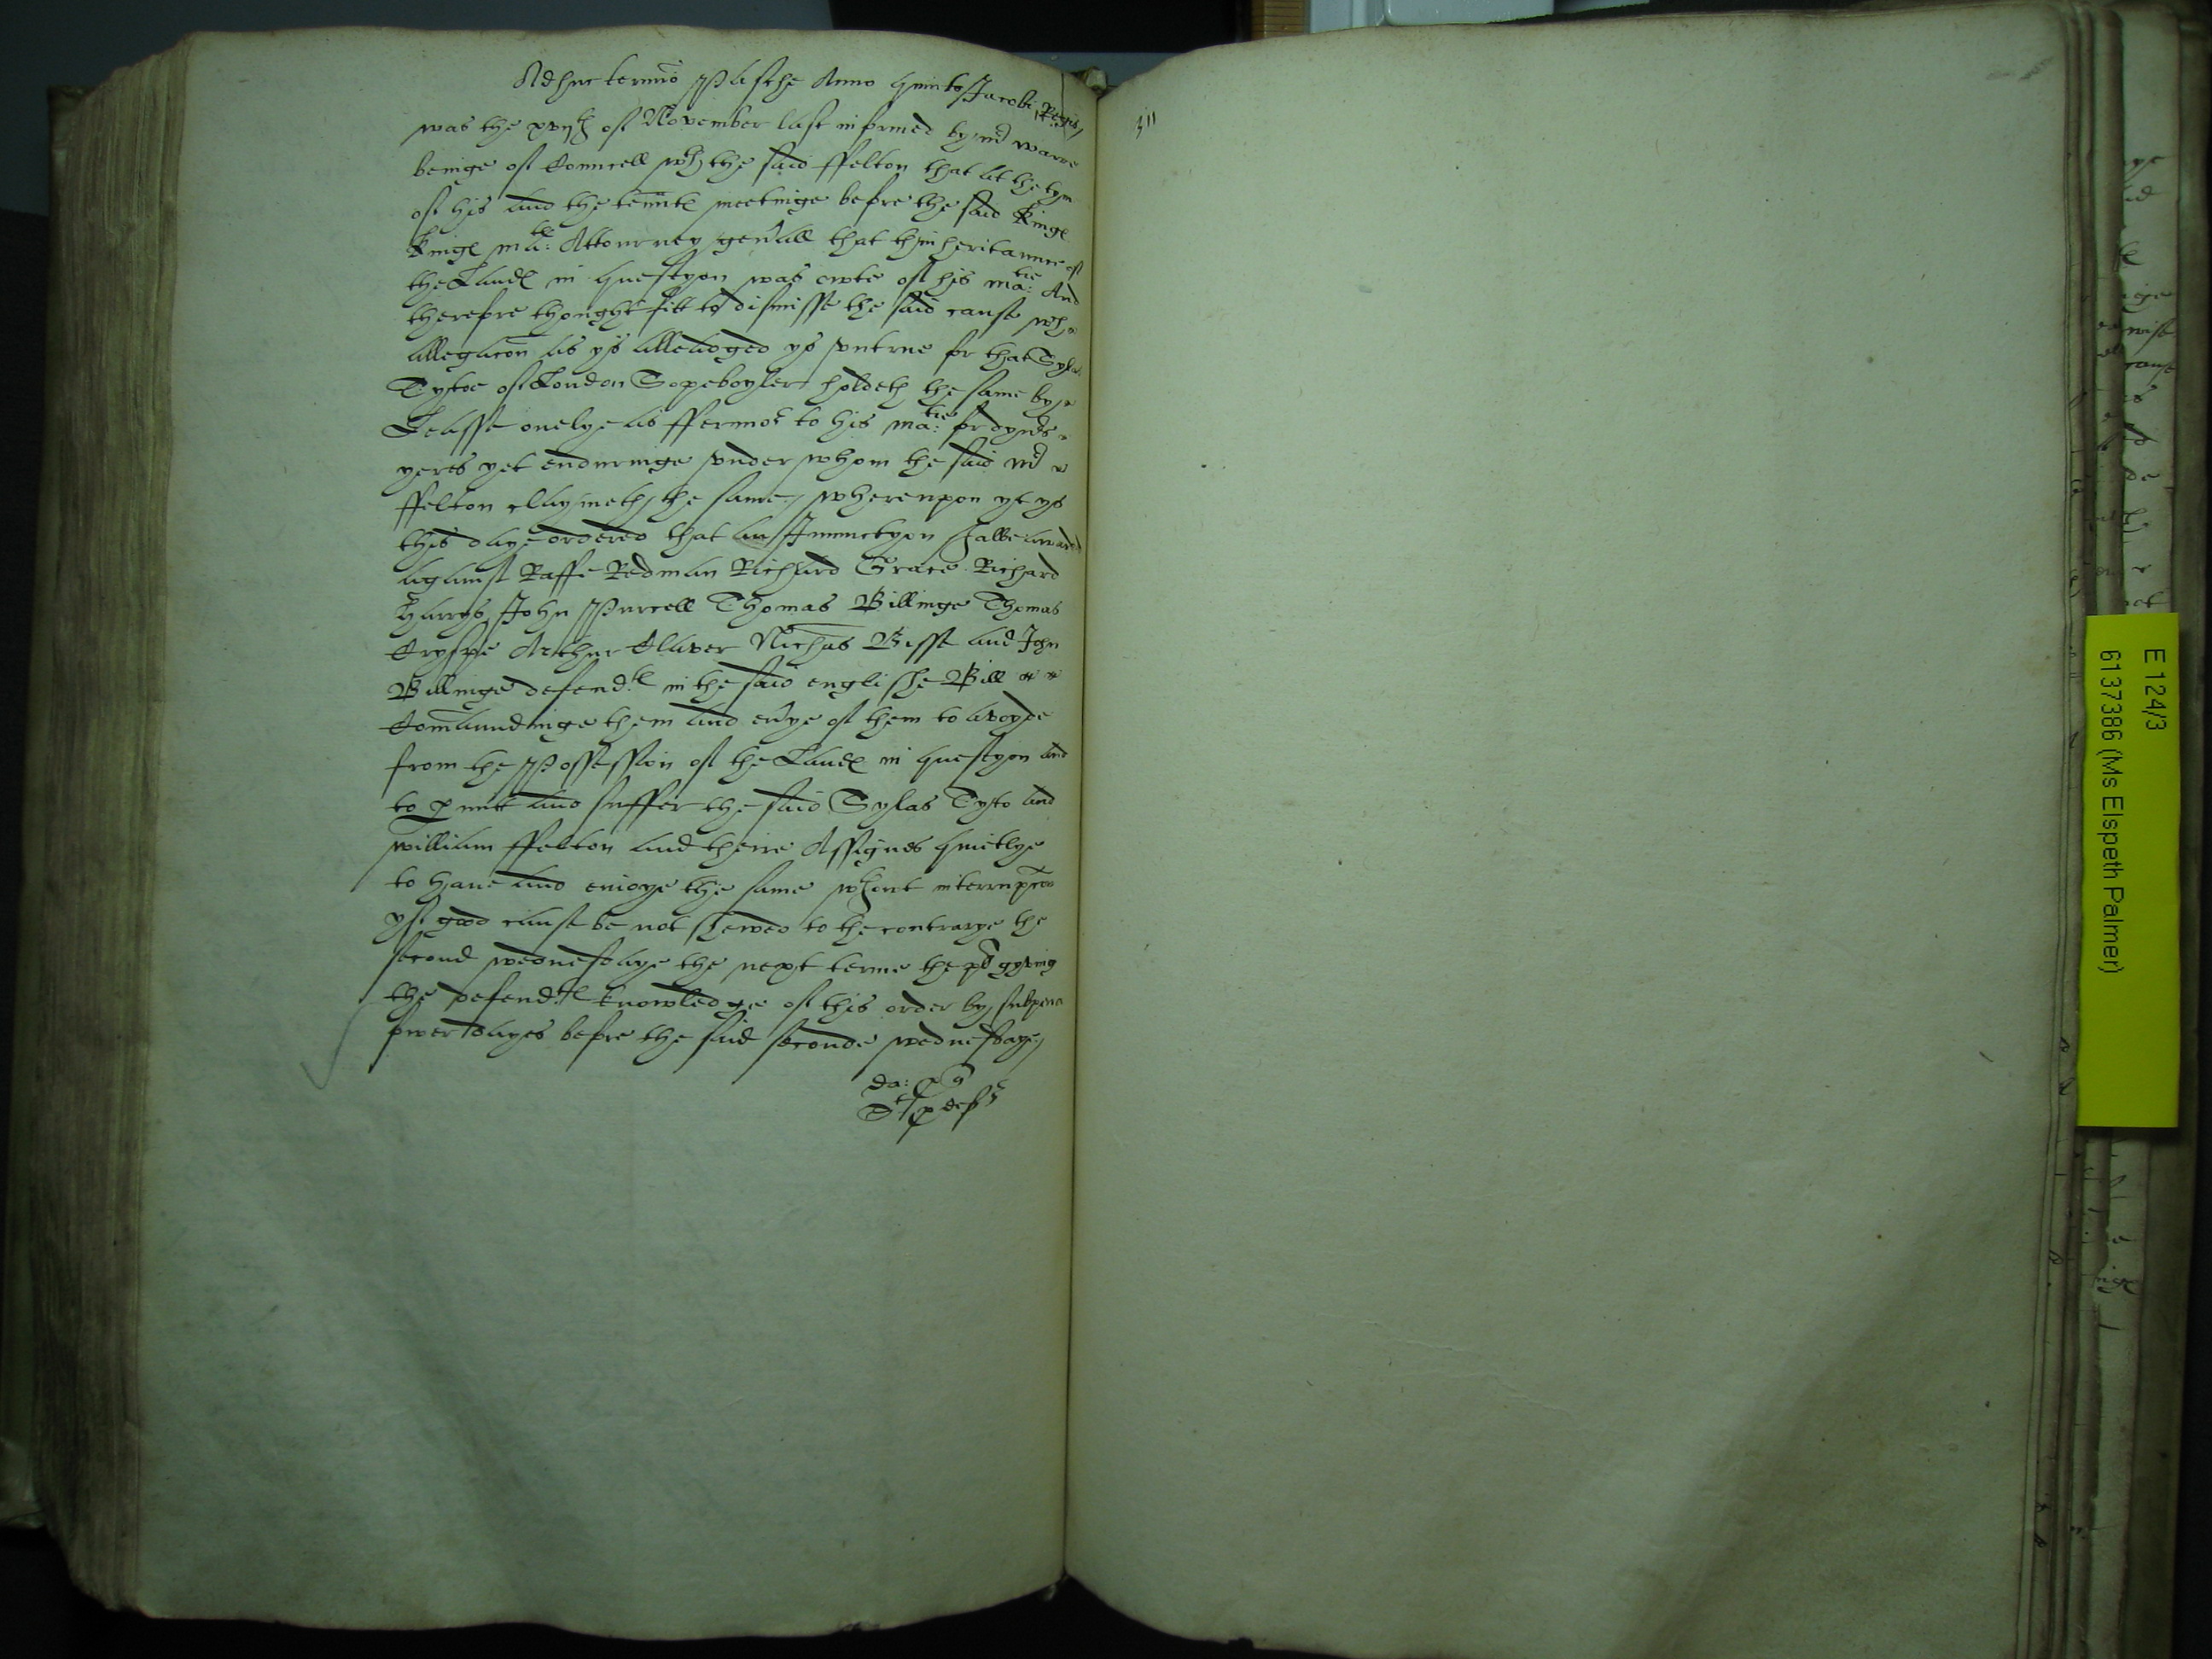 Adhuc termio Pasche Anno quinto Jacobi Regis
was the xvijth of November last informed by mr warre
beinge of Councell wth the said ffelton that at the tyme
of his and the tennts meetinge before the said Kings
Kings mats: Attourney genall that thinheritannce of
the Lands in questyon was owte of his matie: And
therefore thought fitt to dismisse the said cause wch
allegacon as ys alleadged ys vntrue for that Sylas
Tysoe of London Sopeboyler holdeth the same by
Leasse onelye as ffermor to his matie: for dyvrs
yeres yet enduringe vnder whom the said mr
ffelton claymeth the same, wherevpon yt ys
this daye ordered that an Iniunctyon shalbe award
against Raffe Redman Richard Grace Richard
Harrys John Purcell Thomas Billinge Thomas
Cryspe Arthur Claver Nichas Bisse and John
Billinge defendts in the said englishe Bill
Comaundinge them and evye of them to avoyde
from the Possession of the Lands in questyon and
to pmitt and suffer the said Sylas Tyso and
william ffelton and theire Assignes quietlye
to have and enioye the same wthout interrupcon
yf good cause be not shewed to the contrarye the
second wednesdaye the next terme the pl gyving
the defendts knowledge of this order by subpena
fower dayes before the said seconde wednesdaye
311
E 124/3
6137386 (Ms Elspeth Palmer)